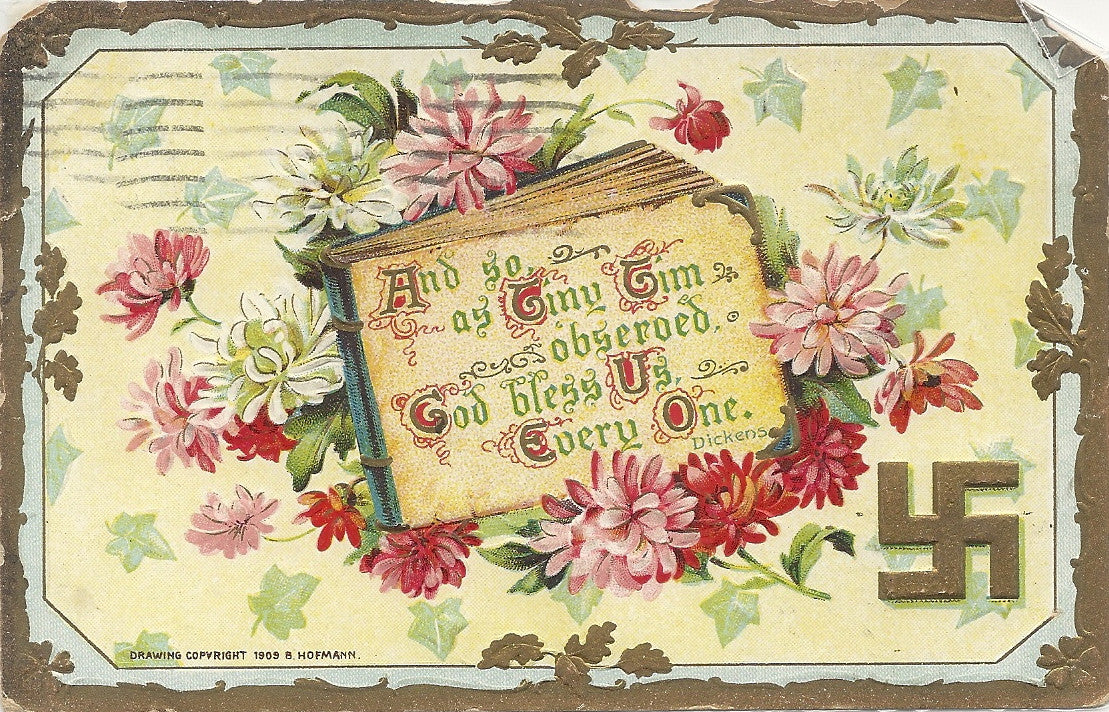 And so,
as Tiny Tim
observed,
God bless Us,
Every One.
Dickens
DRAWING COPYRIGHT 1909 B. HOFMANN.